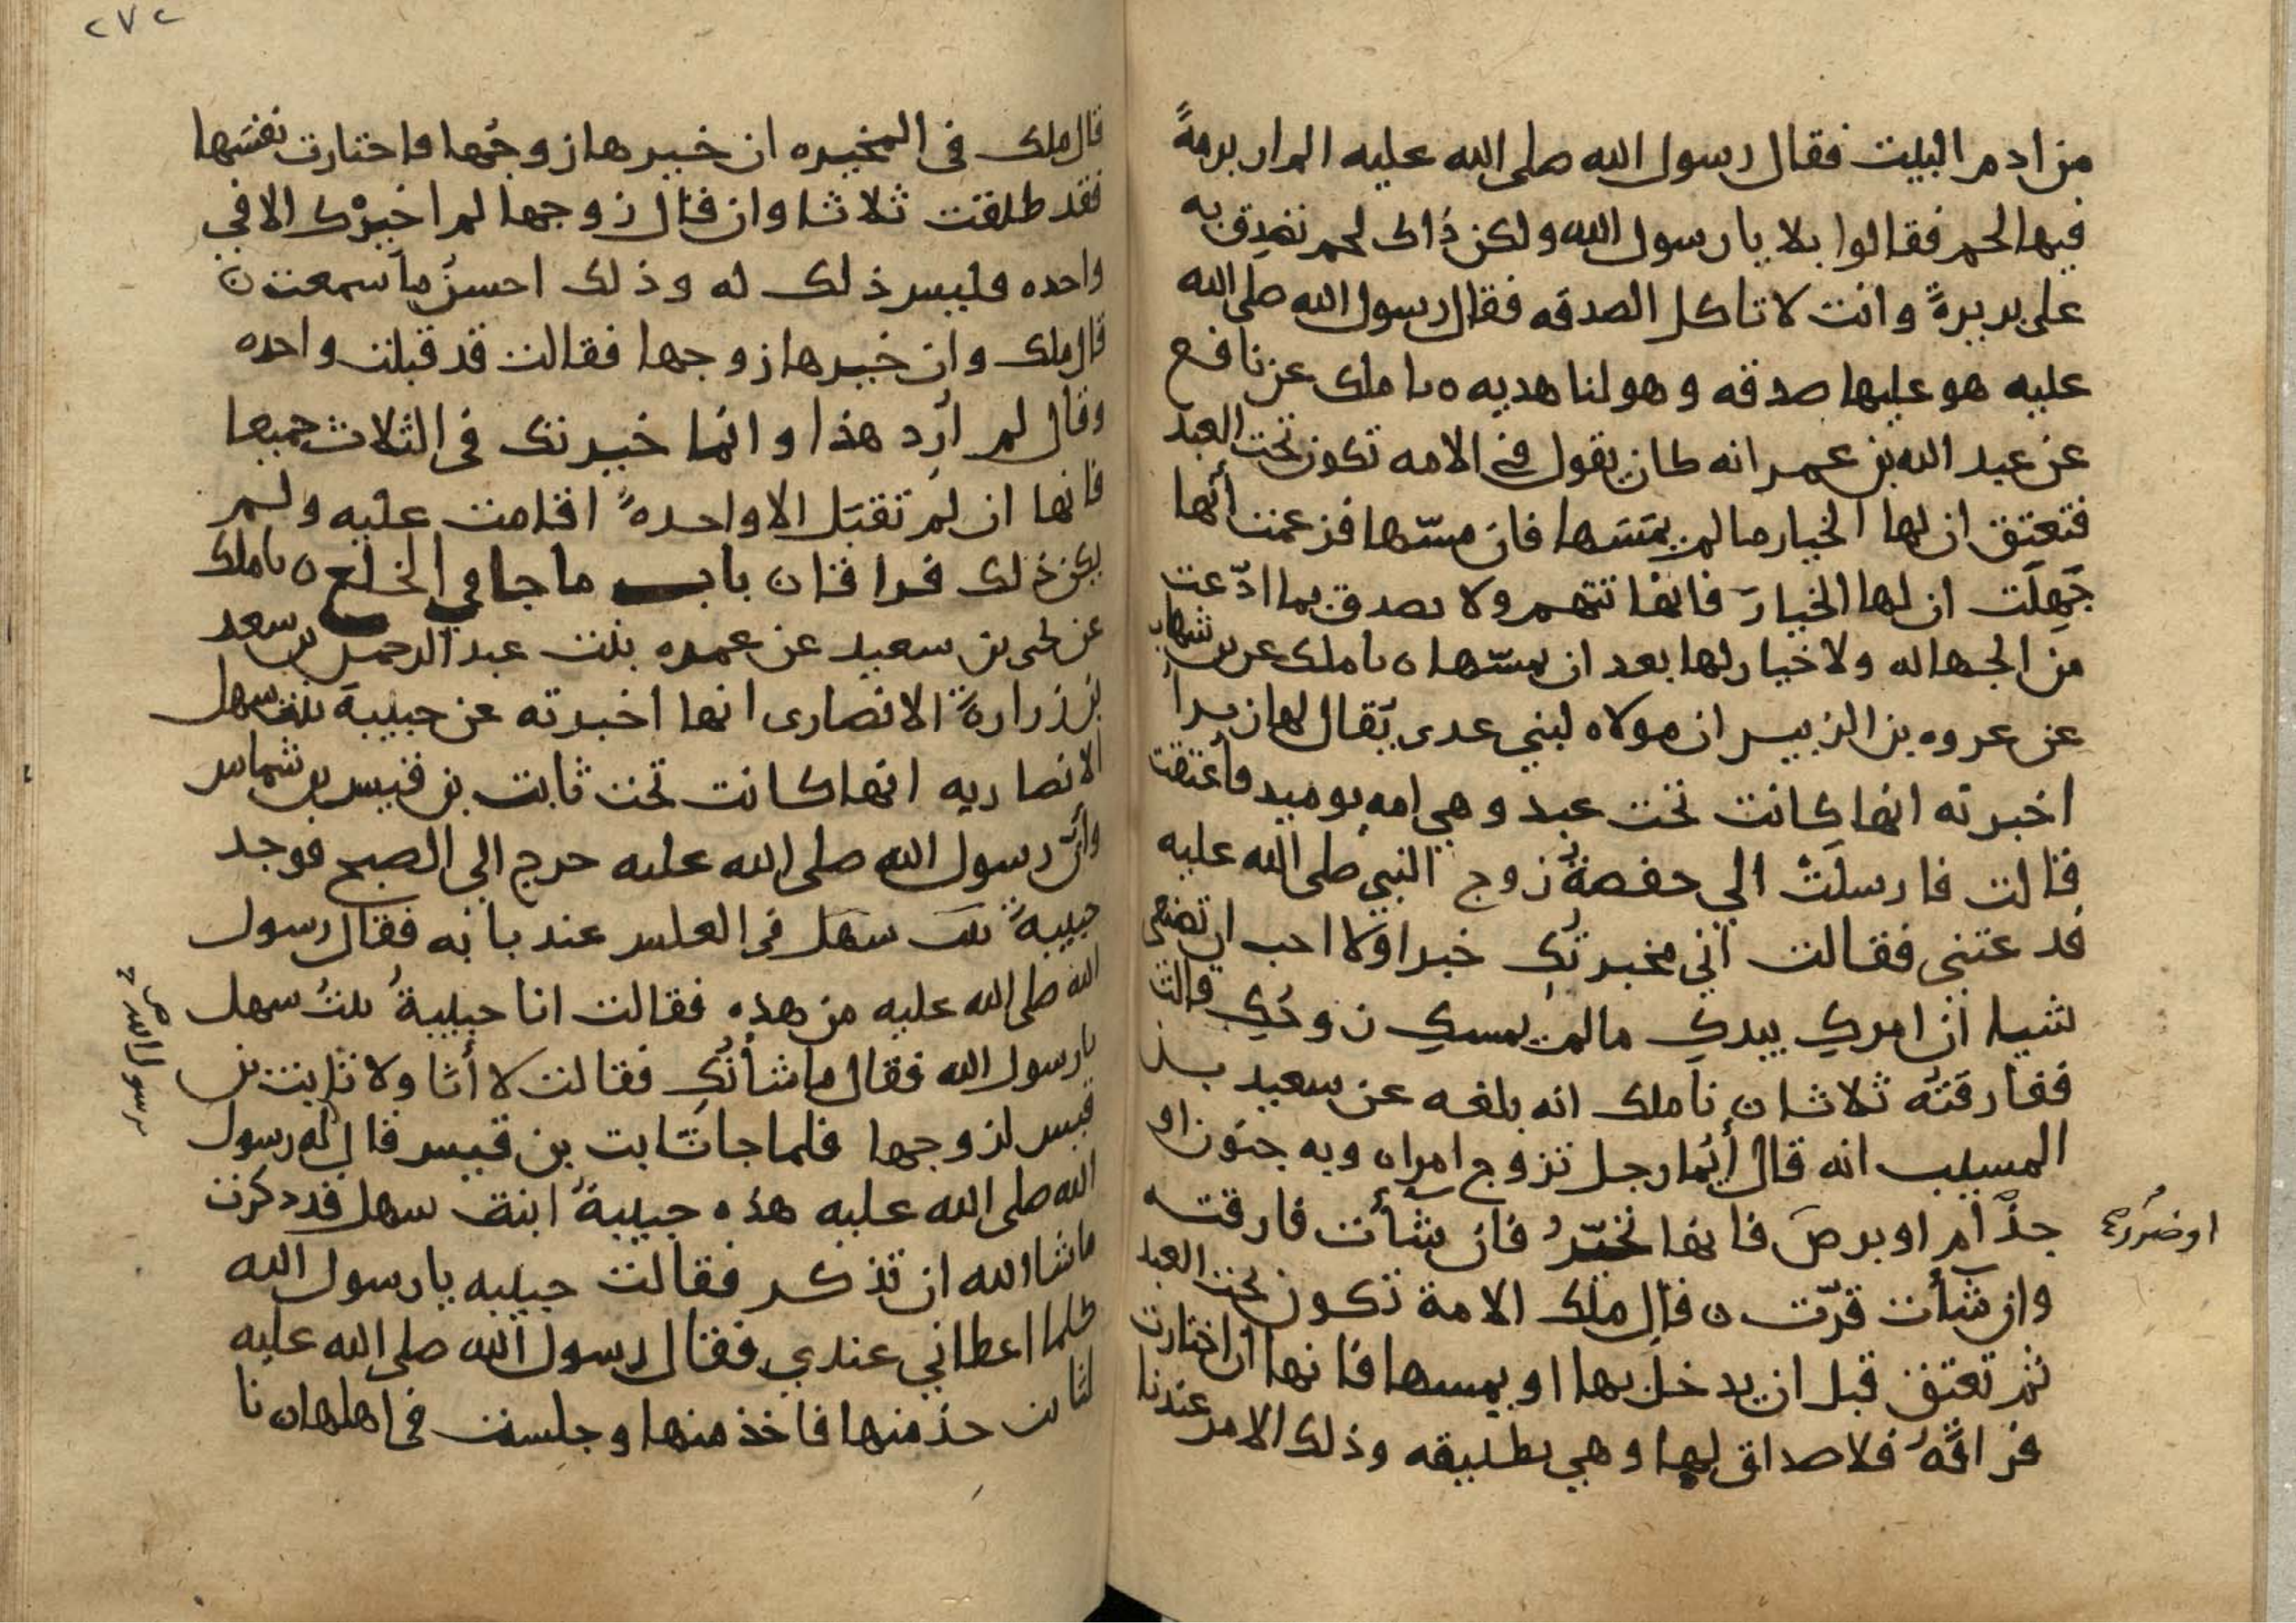 من ادم البيت فقال رسول الله صلى الله عليه الم ار برمةً
فيها لحم فقالوا بلا يا رسول الله ولكن ذاك لحم تصدق به
على بريرةً وانت لا تاكل الصدقه فقال رسول الله صلى الله
عليه هو عليها صدقه وهو لنا هديه ه نا ملك عن نافع
عن عبد الله بن عمر انه كان يقول في الامه تكون تحت العبد
فتعتق ان لها الخيار ما لم يمسَها فان مسّها فزعمت أنها
جَهِلَت ان لها الخيارَ فانها تتهم ولا يصدق بما ادّعت
من الجهاله ولا خيار لها بعد ان يمسّها ه نا ملك عن بن شهاب
عن عروه بن الزبير ان مولاه لبني عدى يُقال لها زبراَ
اخبرته انها كانت تحت عبد وهي امه يوميد فأعتقت
قالت فارسلَتْ الي حفصةُ زوج النبي صلى الله عليه
فدعتني فقالت اني مخبرتُكِ خبرا ولا احب ان تصنعى
شيا ان امركِ بيدكِ ما لم يمسكِ زوجُكِ قالت
ففارقتُه ثلاثا ن نا ملك انه بلغه عن سعيد بن
المسيب انه قال أيُما رجل تزوج امراه وبه جنون او
جذام او برصَ فانها تخيّرُ فان شأت فارقته
اوضررٌ
وان شأت قرّت ن قال ملك الامة تكون تحت العبد
ثم تعتق قبل ان يدخل بها او يمسها فانها ان اختارت
فراقَهُ فلا صداق لها وهي تطليقه وذلك الامر عندنا
٢٧٢
قال ملك في المخيره ان خيرها زوجُها فاختارت نفسَها
فقد طلقت ثلاثا وان قال زوجها لم اخيرْك الا في
واحده فليس ذلك له وذلك احسنُ ما سمعت ن
قال ملك وان خيرها زوجها فقالت قد قبلت واحده
وقال لم أرِد هذا وانما خيرتك في الثلاث جميعا
فانها ان لم تقبَل الا واحدةً اقامت عليه ولم
يكن ذلك فراقا ن باب ما جا في الخلع ن نا ملك
عن يحيى بن سعيد عن عمره بنت عبد الرحمن بن سعد
بن زرارةً الانصارى انها اخبرته عن حبيبةَ بنت سهل
الانصاريه انها كانت تحت ثابت بن قيس بن شماس
وانّ رسول الله صلى الله عليه خرج الي الصبح فوجد
حبيبةً بنت سهَل في الغلس عند بابه فقال رسول
الله صلى الله عليه من هذه فقالت انا حبيبةُ بنتُ سهل
يا رسول الله فقال ما شأنُكِ فقالت لا أنا ولا ثابت بن
قيس لزوجها فلما جا ثابت بن قيس قال له رسول
الله صلى الله عليه هذه حبيبةُ ابنت سهل قد ذكرت
ما شا الله ان تذكر فقالت حبيبه يا رسول الله
كلما اعطاني عندي فقال رسول الله صلى الله عليه
لثابت خذ منها فاخذ منها وجلست في اهلها ن نا